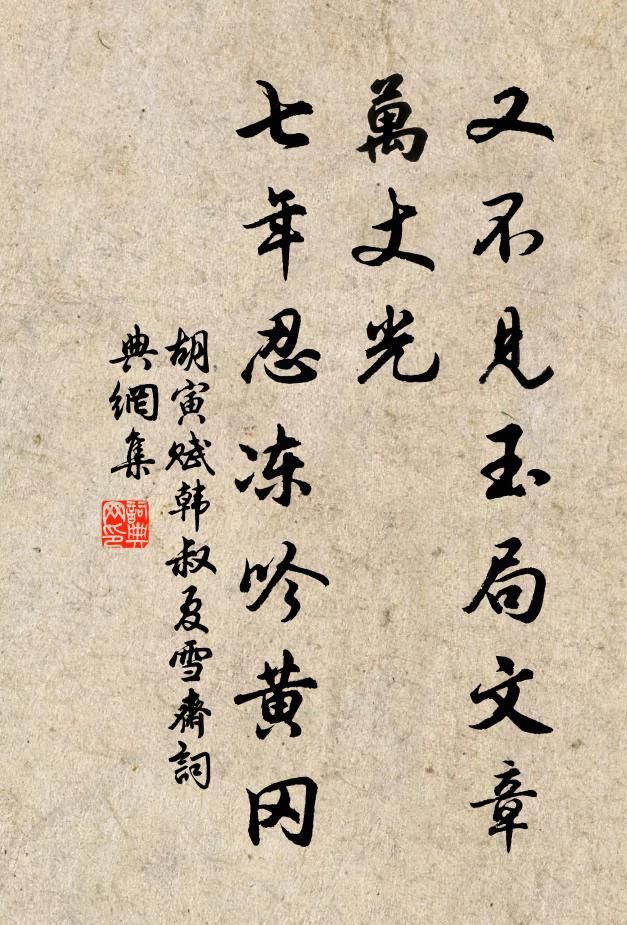 又不見玉局文章
萬丈光
七年忍冻吟黄冈
胡寅赋韩叔夏雪斋詞
典網集
詞典
网印